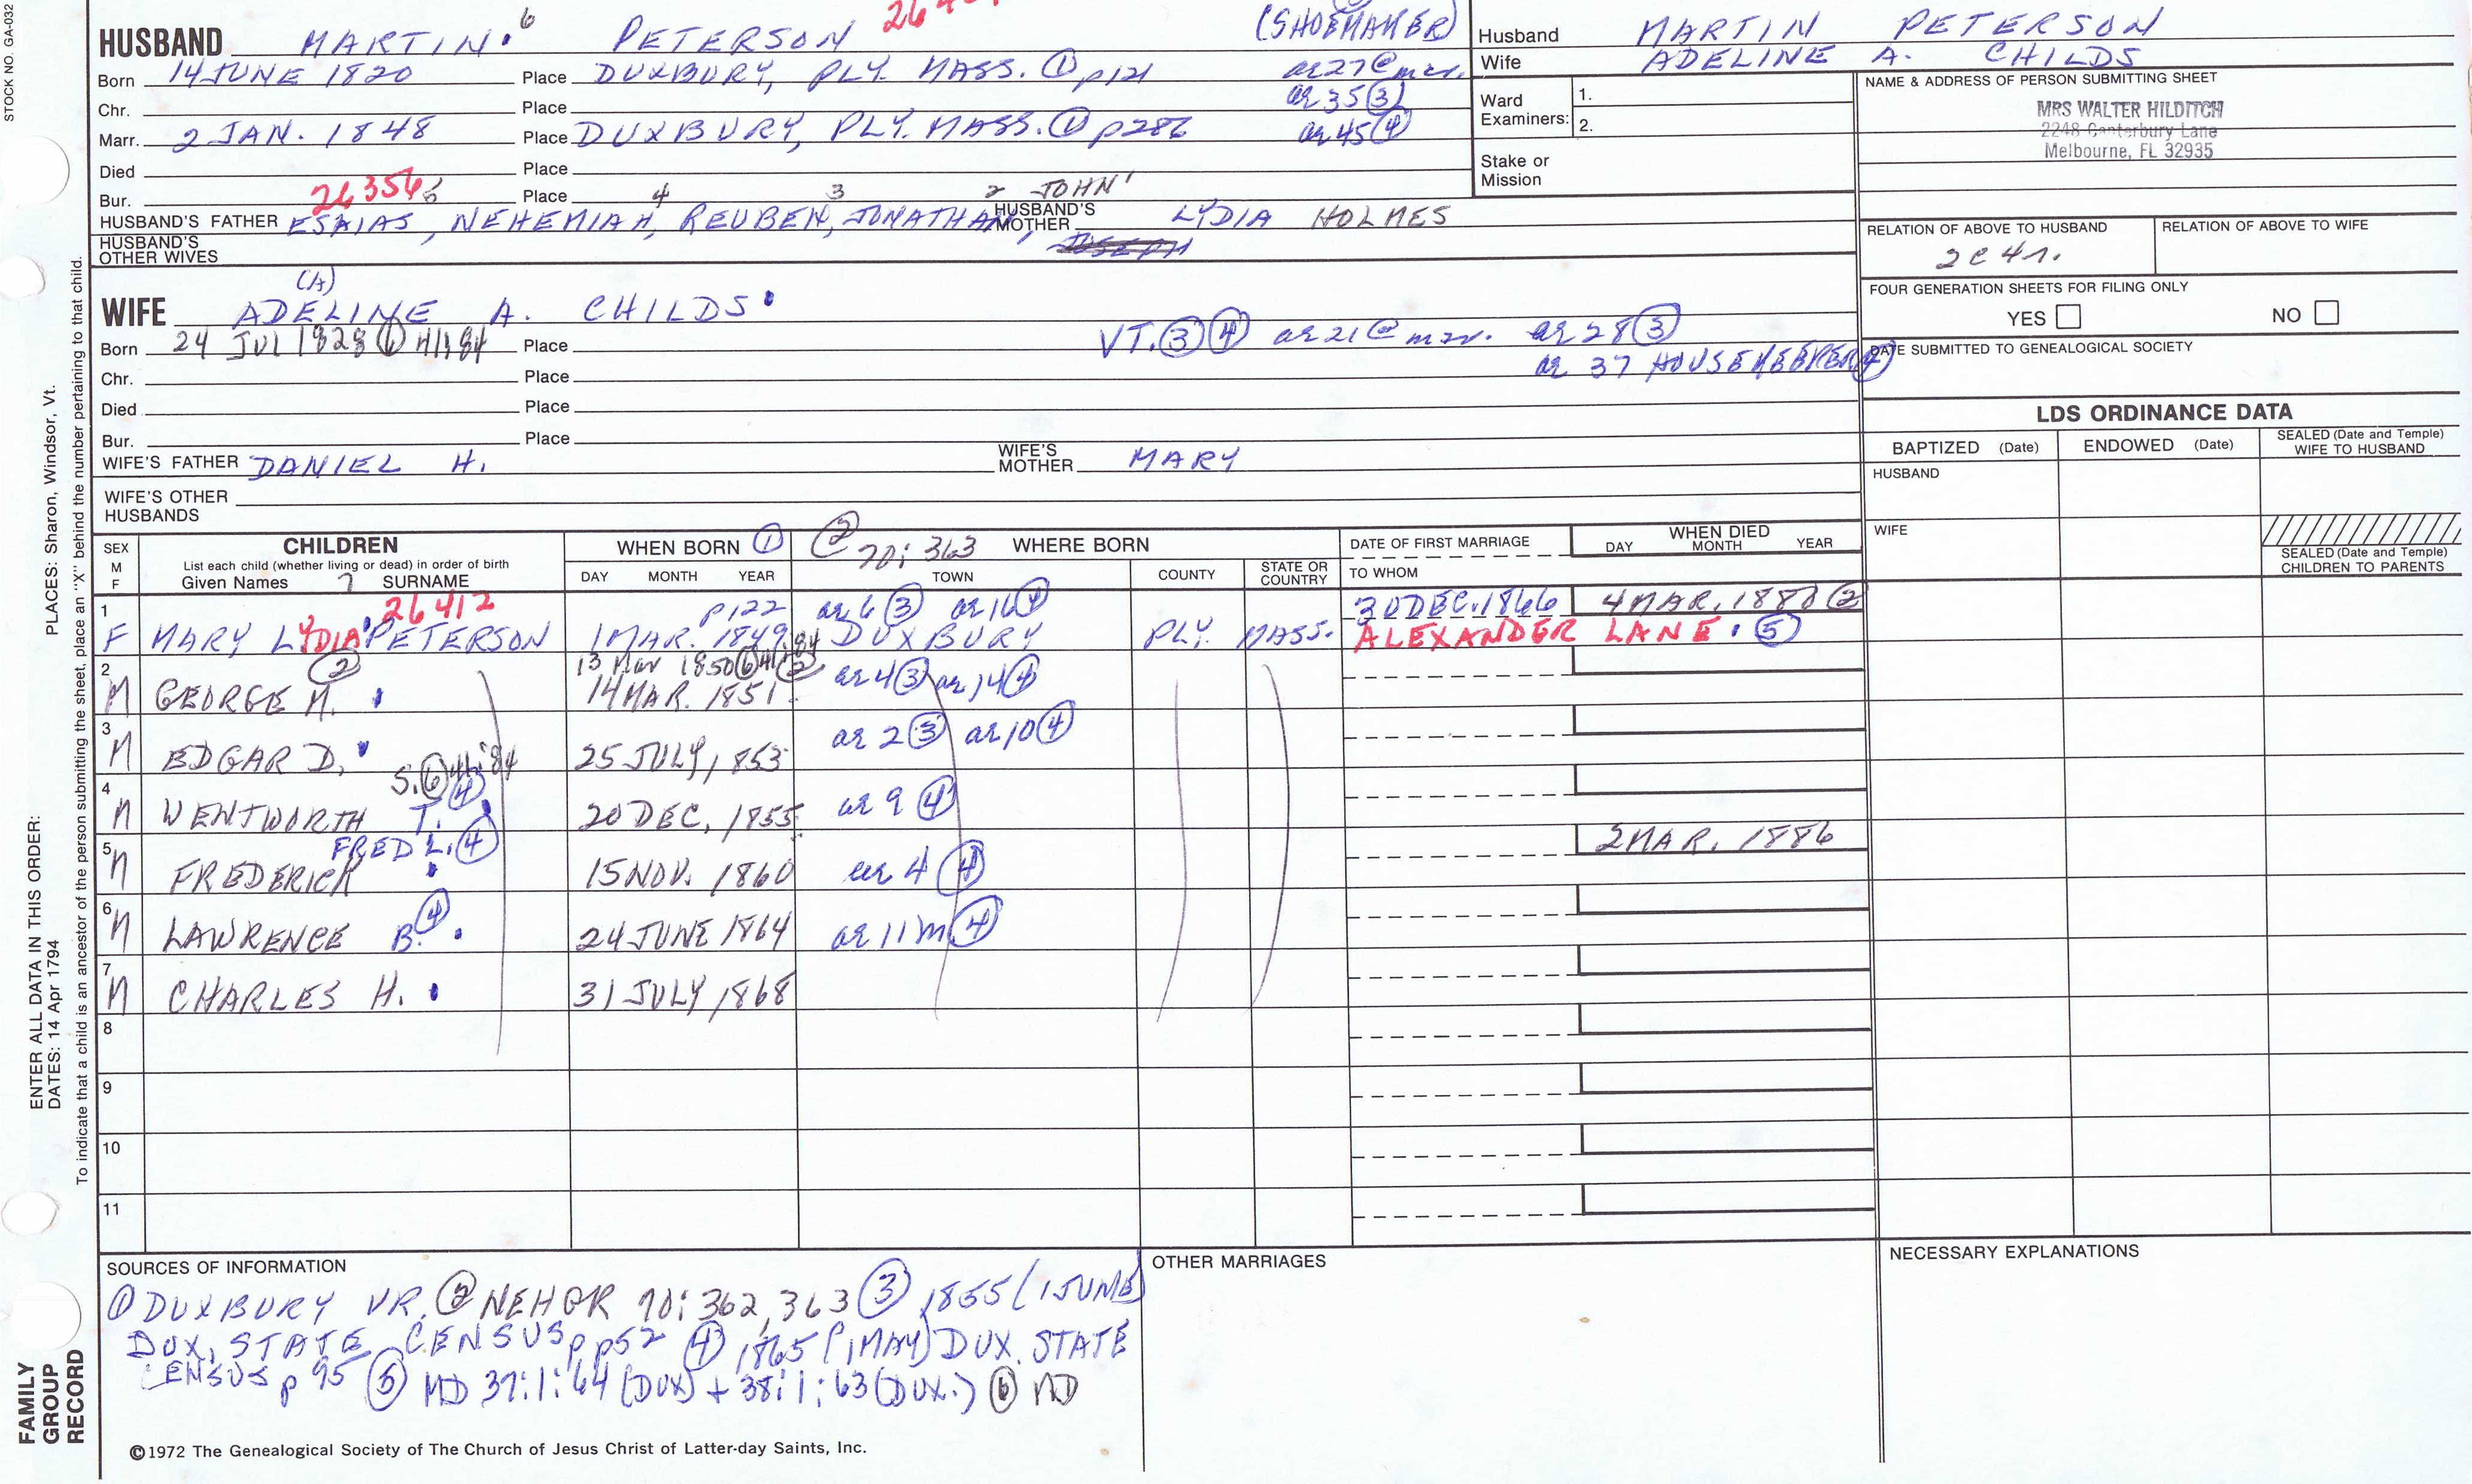 STOCK NO. GA-032
HUSBAND MARTIN 6 PETERSON (SHOEMAKER)
Born 14 JUNE 1820 Place DUXBURY, PLY. MASS. ① p121 ae 27 @ mar.
Chr. Place ae 35 ③
Marr. 2 JAN. 1848 Place DUXBURY, PLY. MASS. ① p286 ae 45 ④
Died Place
Bur. 26356 Place 4 3 2 JOHN 1
HUSBAND'S FATHER ESAIAS, NEHEMIAH, REUBEN, JONATHAN, HUSBAND'S MOTHER LYDIA HOLMES
HUSBAND'S OTHER WIVES JOSEPH
Husband MARTIN PETERSON
Wife ADELINE A. CHILDS
Ward Examiners: 1.
2.
Stake or Mission
NAME & ADDRESS OF PERSON SUBMITTING SHEET
MRS WALTER HILDITCH
2248 Canterbury Lane
Melbourne, FL 32935
RELATION OF ABOVE TO HUSBAND RELATION OF ABOVE TO WIFE
2c 4r.
FOUR GENERATION SHEETS FOR FILING ONLY
YES NO
DATE SUBMITTED TO GENEALOGICAL SOCIETY
(A)
WIFE ADELINE A. CHILDS
Born 24 JUL 1828 ⑥ 41:184 Place VT. ③ ④ ae 21 @ mar. ae 28 ③
Chr. Place ae 37 HOUSEKEEPER ④
Died Place
Bur. Place
WIFE'S FATHER DANIEL H. WIFE'S MOTHER MARY
WIFE'S OTHER HUSBANDS
LDS ORDINANCE DATA
BAPTIZED (Date) ENDOWED (Date) SEALED (Date and Temple) WIFE TO HUSBAND
HUSBAND
WIFE
SEALED (Date and Temple) CHILDREN TO PARENTS
SEX M F CHILDREN
List each child (whether living or dead) in order of birth
Given Names 7 SURNAME
WHEN BORN ① DAY MONTH YEAR
② 70:363 WHERE BORN TOWN COUNTY STATE OR COUNTRY
DATE OF FIRST MARRIAGE TO WHOM
WHEN DIED DAY MONTH YEAR
1 26412 p122 ae 6 ③ ae 16 ④ 30 DEC. 1866 4 MAR. 1880 ②
F MARY LYDIA PETERSON 1 MAR. 1849 DUXBURY PLY. MASS. ALEXANDER LANE ⑤
2 ② 13 Mar 1850 ⑥ 41:184 ②
M GEORGE M. 14 MAR. 1851 ae 4 ③ ae 14 ④
3 M EDGAR D. 25 JULY, 1853 ae 2 ③ ae 10 ④
S. ⑥ 41:184
4 M WENTWORTH T. ④ 20 DEC. 1855 ae 9 ④
FRED L. ④ 2 MAR. 1886
5 M FREDERICK 15 NOV. 1860 ae 4 ④
6 M LAWRENCE B. ④ 24 JUNE 1864 ae 11m ④
7 M CHARLES H. 31 JULY 1868
8
9
10
11
SOURCES OF INFORMATION
① DUXBURY VR. ② NEHGR 70:362, 363 ③ 1855 (1 JUNE)
DUX. STATE CENSUS p p52 ④ 1865 (1 MAY) DUX. STATE
CENSUS p 95 ⑤ MD 37:1:64 (DUX) + 38:1:63 (DUX.) ⑥ MD
OTHER MARRIAGES
NECESSARY EXPLANATIONS
©1972 The Genealogical Society of The Church of Jesus Christ of Latter-day Saints, Inc.
To indicate that a child is an ancestor of the person submitting the sheet, place an "X" behind the number pertaining to that child.
ENTER ALL DATA IN THIS ORDER:
DATES: 14 Apr 1794
PLACES: Sharon, Windsor, Vt.
FAMILY
GROUP
RECORD